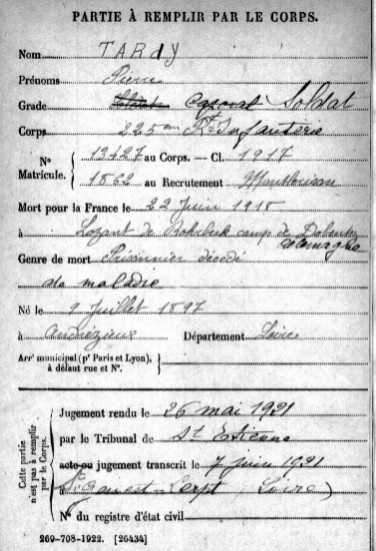 PARTIE À REMPLIR PAR LE CORPS.
Nom TARDY
Prénoms Pierre
Grade Soldat Caporal Soldat
Corps 225eme Rt Infanterie
Nº 13427 au Corps. — Cl. 1917
Matricule. 1862 au Recrutement Montbrison
Mort pour la France le 22 Juin 1918
à de camp de
Allemagne
Genre de mort Prisonnier décédé
de maladie
Né le 9 Juillet 1897
à Andrézieux Département Loire
Arrt municipal (pr Paris et Lyon),
à défaut rue et Nº.
Cette partie n'est pas à remplir par le Corps.
Jugement rendu le 26 mai 1921
par le Tribunal de St Etienne
acte ou jugement transcrit le 7 juin 1921
à St Genest-Lerpt (Loire)
Nº du registre d'état civil
269-708-1922. [26434]